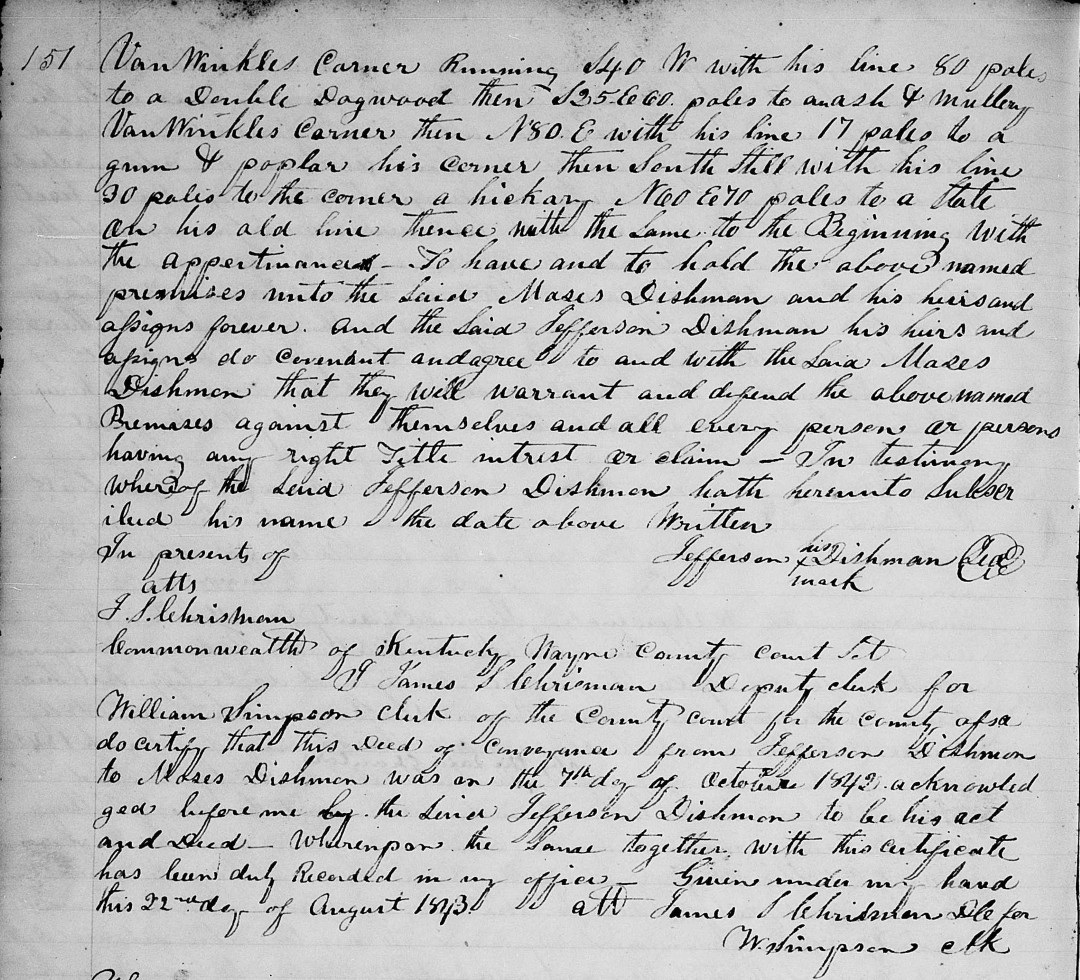 151 VanWinkles Corner Running S40 W with his line 80 poles
to a Double Dogwood then S25 E 60 poles to an ash & mulbery
VanWinkles Corner then N80 E with his line 17 poles to a
gum & poplar his corner then South Still with his line
30 poles to the corner a hickary N60 E 70 poles to a State
on his old line thence with the Same to the Beginning With
the appertinances - To have and to hold the above named
premises unto the Said Moses Dishman and his heirs and
assigns forever. and the Said Jefferson Dishman his heirs and
assigns do Covenant and agree to and with the Said Moses
Dishmon that they will warrant and defend the above named
Premises against themselves and all every person or persons
having any right Title intrest or claim - In testimony
whereof the Said Jefferson Dishmon hath hereunto Subscr
ibed his name the date above Written
In presents of Jefferson his Dishman
atts mark
J. S. Chrisman
Commonwealth of Kentucky Wayne County Court Sct
I James S Chrisman Deputy clerk for
William Simpson clerk of the County court for the County afsd
do certify that this Deed of Conveyance from Jefferson Dishmon
to Moses Dishmon was on the 7th day of October 1842 acknowled
ged before me by the Said Jefferson Dishmon to be his act
and Deed - Whereupon the Same together with this certificate
has been duly Recorded in my office - Given under my hand
this 22nd day of August 1843. att James S Chrisman DC for
W. Simpson clk